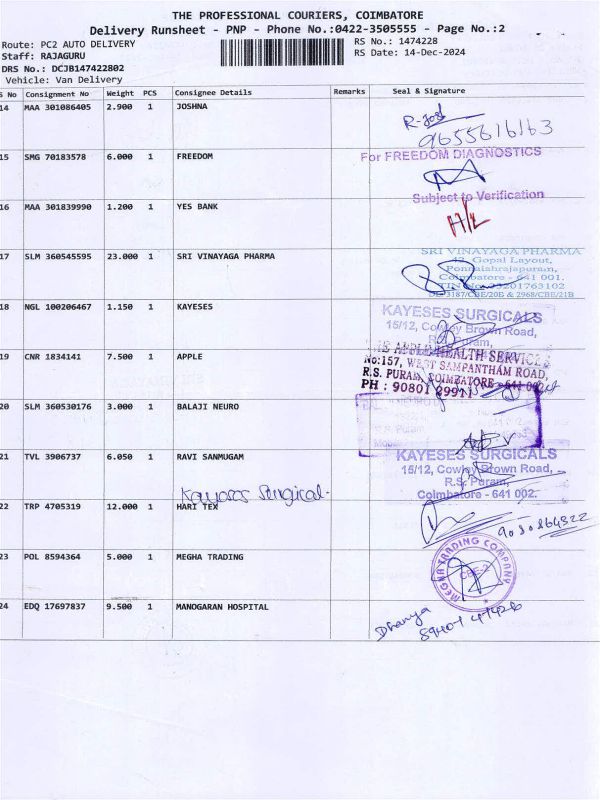 THE PROFESSIONAL COURIERS, COIMBATORE
Delivery Runsheet - PNP - Phone No.:0422-3505555 - Page No.:2
Route: PC2 AUTO DELIVERY
RS No.: 1474228
Staff: RAJAGURU
RS Date: 14-Dec-2024
DRS No.: DCJB147422802
Vehicle: Van Delivery
S No Consignment No Weight PCS Consignee Details Remarks Seal & Signature
14 MAA 301086405 2.900 1 JOSHNA
9655616163
15 SMG 70183578 6.000 1 FREEDOM
For FREEDOM DIAGNOSTICS
Subject to Verification
16 MAA 301839990 1.200 1 YES BANK
17 SLM 360545595 23.000 1 SRI VINAYAGA PHARMA
SRI VINAYAGA PHARMA
Gopal Layout,
Ponnaiahrajapuram,
Coimbatore - 641 001.
18 NGL 100206467 1.150 1 KAYESES
KAYESES SURGICALS
15/12, Cowley Brown Road,
R.S. Puram,
19 CNR 1834141 7.500 1 APPLE
HEALTH SERVICE
No:157, WEST SAMPANTHAM ROAD,
R.S. PURAM, COIMBATORE - 641 002
PH : 90801 29911
20 SLM 360530176 3.000 1 BALAJI NEURO
21 TVL 3906737 6.050 1 RAVI SANMUGAM
KAYESES SURGICALS
15/12, Cowley Brown Road,
R.S. Puram,
Coimbatore - 641 002.
Kayeses Surgical-
22 TRP 4705319 12.000 1 HARI TEX
23 POL 8594364 5.000 1 MEGHA TRADING
MEGHA TRADING COMPANY
CBE-2
24 EDQ 17697837 9.500 1 MANOGARAN HOSPITAL
Dhanya